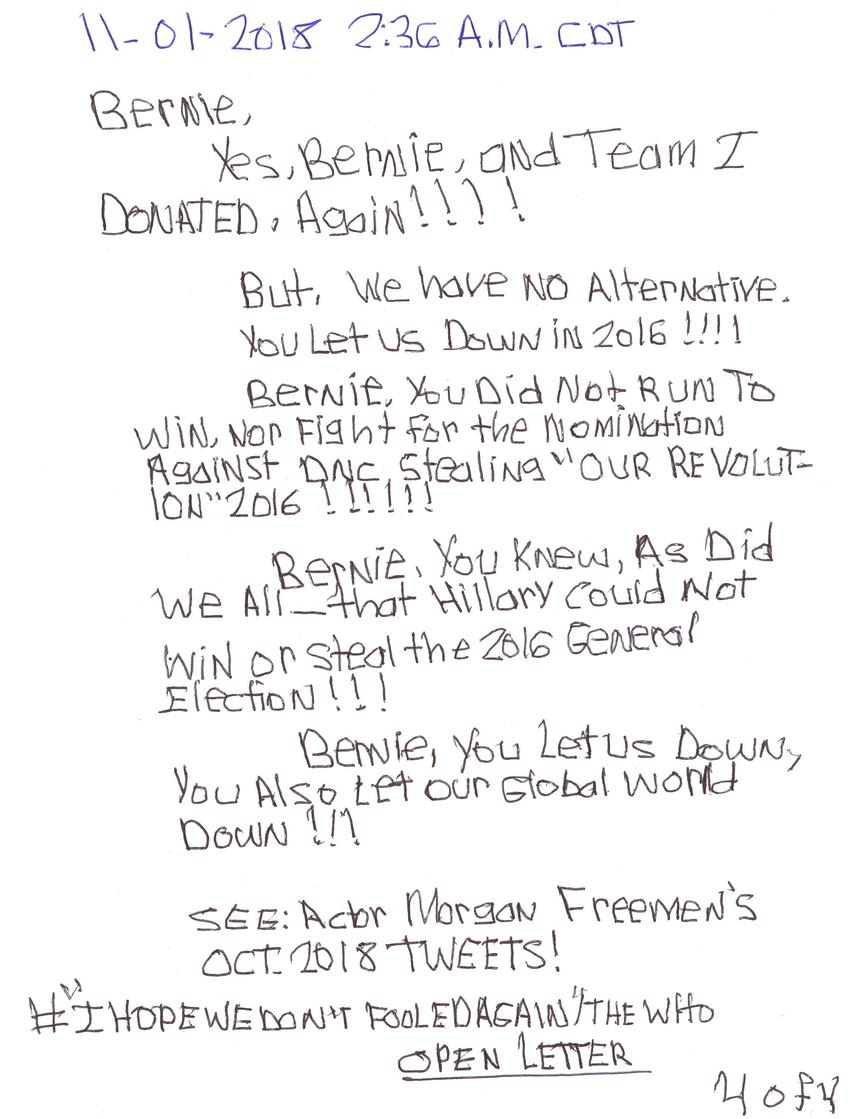 11-01-2018 2:36 A.M. CDT
Bernie,
Yes, Bernie, and Team I
DONATED, Again!!!!
But, We have NO Alternative.
You Let us Down in 2016 !!!!
Bernie, You Did Not RUN To
WiN, Nor Fight for the Nomination
Against DNC, Stealing "OUR REVOLUT-
ION" 2016 !!!!!!
Bernie, You Knew, As Did
We All—that Hillary Could Not
WiN or steal the 2016 General
Election!!!
Bernie, You Let us Down,
You Also Let our Global World
Down !!!
SEE: Actor Morgan Freemen's
OCT. 2018 TWEETS!
#"I HOPE WE DON'T FOOLED AGAIN"/THE WHO
OPEN LETTER
4 of 4